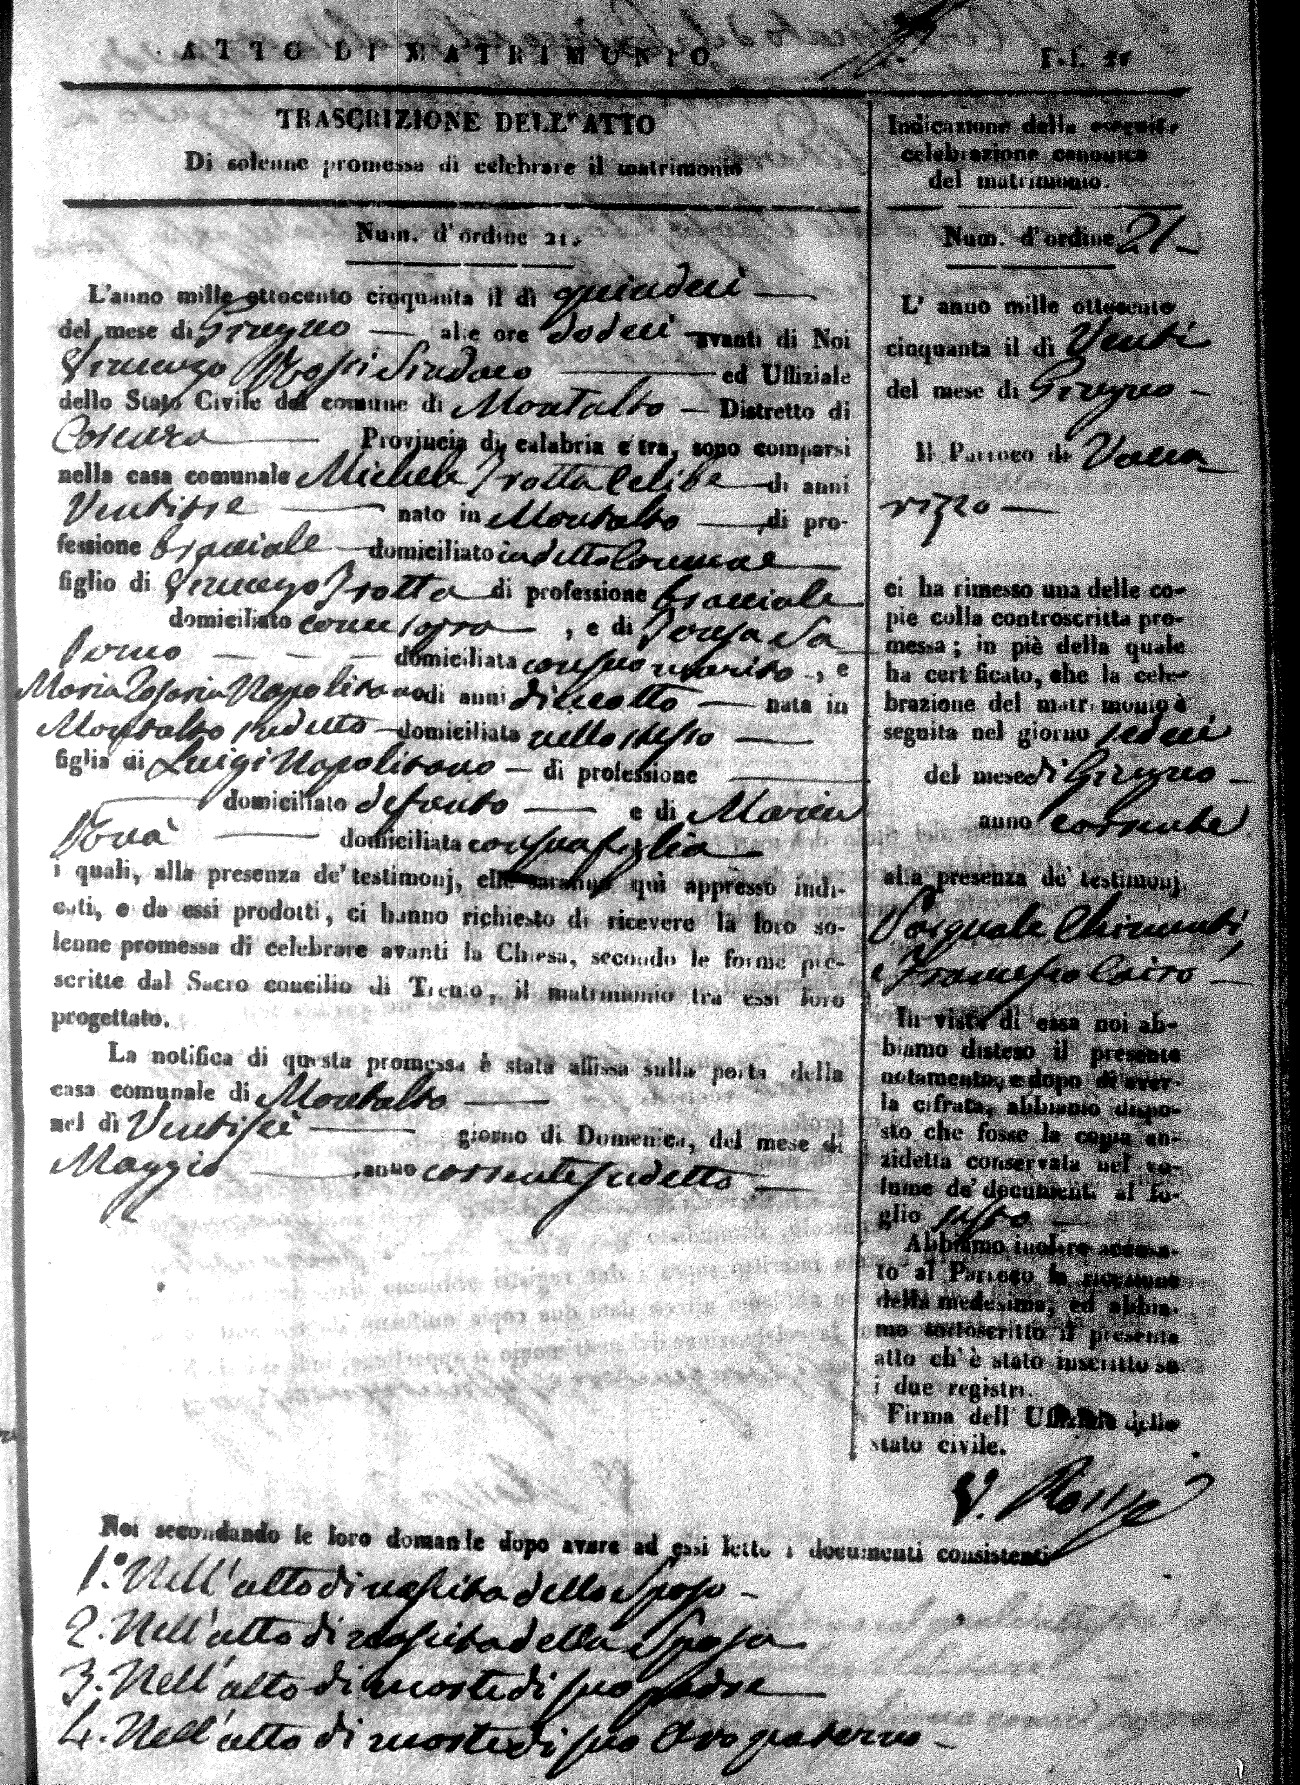 ATTO DI MATRIMONIO
TRASCRIZIONE DELL'ATTO
Di solenne promessa di celebrare il matrimonio
Num. d'ordine 21.
L'anno mille ottocento cinquanta il dì quindeci
del mese di Giugno alle ore dodeci avanti di Noi
Vincenzo Rossi Sindaco ed Uffiziale
dello Stato Civile del comune di Montalto Distretto di
Cosenza Provincia di calabria citra, sono comparsi
nella casa comunale Michele Trotta Celibe di anni
Ventitre nato in Montalto di pro-
fessione bracciale domiciliato in detto Comune
figlio di Vincenzo Trotta di professione bracciale
domiciliato come sopra, e di
domiciliata con suo marito, e
Maria Rosaria Napolitano di anni dieciotto nata in
Montalto sudetto domiciliata nello stesso
figlia di Luigi Napolitano di professione
domiciliato defonto e di Maria
domiciliata con sua figlia
i quali, alla presenza de' testimonj, che saranno quì appresso indi-
cati, e da essi prodotti, ci hanno richiesto di ricevere la loro so-
lenne promessa di celebrare avanti la Chiesa, secondo le forme pre-
scritte dal Sacro concilio di Trento, il matrimonio tra essi loro
progettato.
La notifica di questa promessa è stata affissa sulla porta della
casa comunale di Montalto
nel dì Ventisei giorno di Domenica, del mese di
Maggio anno corrente sudetto
Indicazione della seguita
celebrazione canonica
del matrimonio.
Num. d'ordine 21
L' anno mille ottocento
cinquanta il dì Venti
del mese di Giugno
Il Parroco di Vacca
rizzo
ci ha rimesso una delle co-
pie colla controscritta pro-
messa; in piè della quale
ha certificato, che la cele-
brazione del matrimonio è
seguita nel giorno sedeci
del mese di Giugno
anno corrente
alla presenza de' testimonj
Pasquale Chimenti
e Francesco Cairo
In vista di essa noi ab-
biamo disteso il presente
notamento, e dopo di aver-
la cifrata, abbiamo dispo-
sto che fosse la copia an-
zidetta conservata nel vo-
lume de' document. al fo-
glio sesto
Abbiamo inoltre accusa-
to al Parroco la ricezione
della medesima, ed abbia-
mo sottoscritto il presente
atto ch'è stato inscritto su
i due registri.
Firma dell' Uffiziale dello
stato civile.
V. Rossi
Noi secondando le loro domande dopo avere ad essi letto i documenti consistenti
1.° Nell'atto di nascita dello Sposo
2. Nell'atto di nascita della Sposa
3. Nell'atto di morte di suo padre
4. Nell'atto di morte di suo Avo paterno